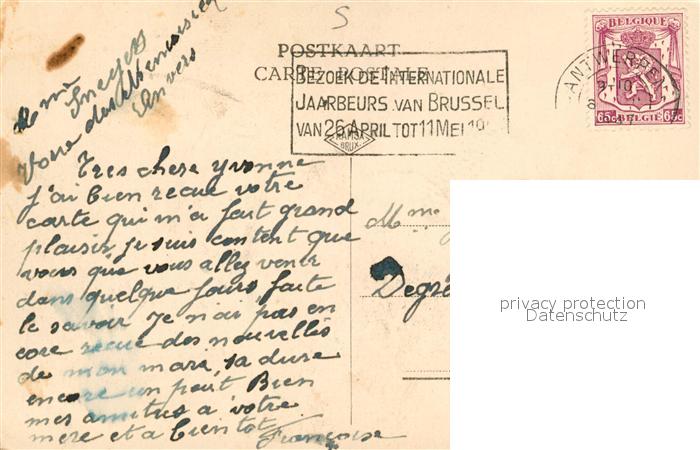 S
POSTKAART
CARTE POSTALE
BEZOEK DE INTERNATIONALE
JAARBEURS VAN BRUSSEL
VAN 26 APRIL TOT 11 MEI 19
BELGIQUE
65c 65c
ANTWERPEN
Sneyers
Anvers
Tres chere Yvonne
j'ai bien recue votre
carte qui m'a fait grand
plaisir je suis content que
vous que vous allez venir
dans quelque jours faite
le savoir je n'ai pas en
core recue des nouvelles
de mon mari, sa dure
encore un peut Bien
mes amitus a votre
mere et a bientot
Francoise
Mme
Degré
privacy protection
Datenschutz